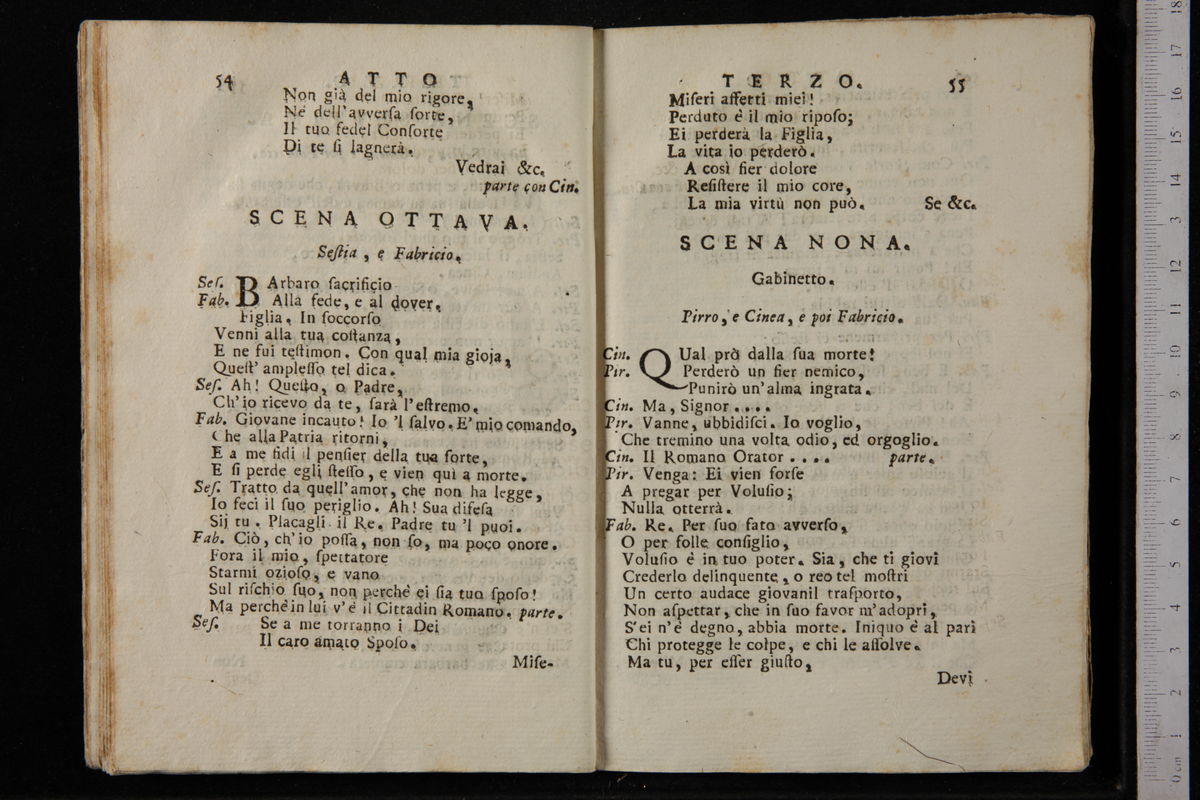 54 ATTO
Non già del mio rigore,
Nè dell'avverſa ſorte,
Il tuo fedel Conſorte
Di te ſi lagnerà.
Vedrai &c.
parte con Cin.
SCENA OTTAVA.
Seſtia, e Fabricio.
Seſ. BArbaro ſacrificio
Fab. Alla fede, e al dover.
Figlia. In ſoccorſo
Venni alla tua coſtanza,
E ne fui teſtimon. Con qual mia gioja,
Queſt' ampleſſo tel dica.
Seſ. Ah! Queſto, o Padre,
Ch'io ricevo da te, ſarà l'eſtremo.
Fab. Giovane incauto! Io 'l ſalvo. E' mio comando,
Che alla Patria ritorni,
E a me fidi il penſier della tua ſorte,
E ſi perde egli ſteſſo, e vien quì a morte.
Seſ. Tratto da quell'amor, che non ha legge,
Io feci il ſuo periglio. Ah! Sua difeſa
Sij tu. Placagli il Re. Padre tu 'l puoi.
Fab. Ciò, ch'io poſſa, non ſo, ma poco onore.
Fora il mio, ſpettatore
Starmi ozioſo, e vano
Sul riſchio ſuo, non perchè ei ſia tuo ſpoſo!
Ma perchè in lui v'è il Cittadin Romano. parte.
Seſ. Se a me torranno i Dei
Il caro amato Spoſo.
Miſe-
TERZO. 55
Miſeri affetti miei!
Perduto è il mio ripoſo;
Ei perderà la Figlia,
La vita io perderò.
A così fier dolore
Reſiſtere il mio core,
La mia virtù non può. Se &c.
SCENA NONA.
Gabinetto.
Pirro, e Cinea, e poi Fabricio.
Cin. QUal prò dalla ſua morte!
Pir. Perderò un fier nemico,
Punirò un'alma ingrata.
Cin. Ma, Signor....
Pir. Vanne, ubbidiſci. Io voglio,
Che tremino una volta odio, ed orgoglio.
Cin. Il Romano Orator.... parte.
Pir. Venga: Ei vien forſe
A pregar per Voluſio;
Nulla otterrà.
Fab. Re. Per ſuo fato avverſo,
O per folle conſiglio,
Voluſio è in tuo poter. Sia, che ti giovi
Crederlo delinquente, o reo tel moſtri
Un certo audace giovanil traſporto,
Non aſpettar, che in ſuo favor m'adopri,
S'ei n'è degno, abbia morte. Iniquo è al pari
Chi protegge le colpe, e chi le aſſolve.
Ma tu, per eſſer giuſto,
Devi